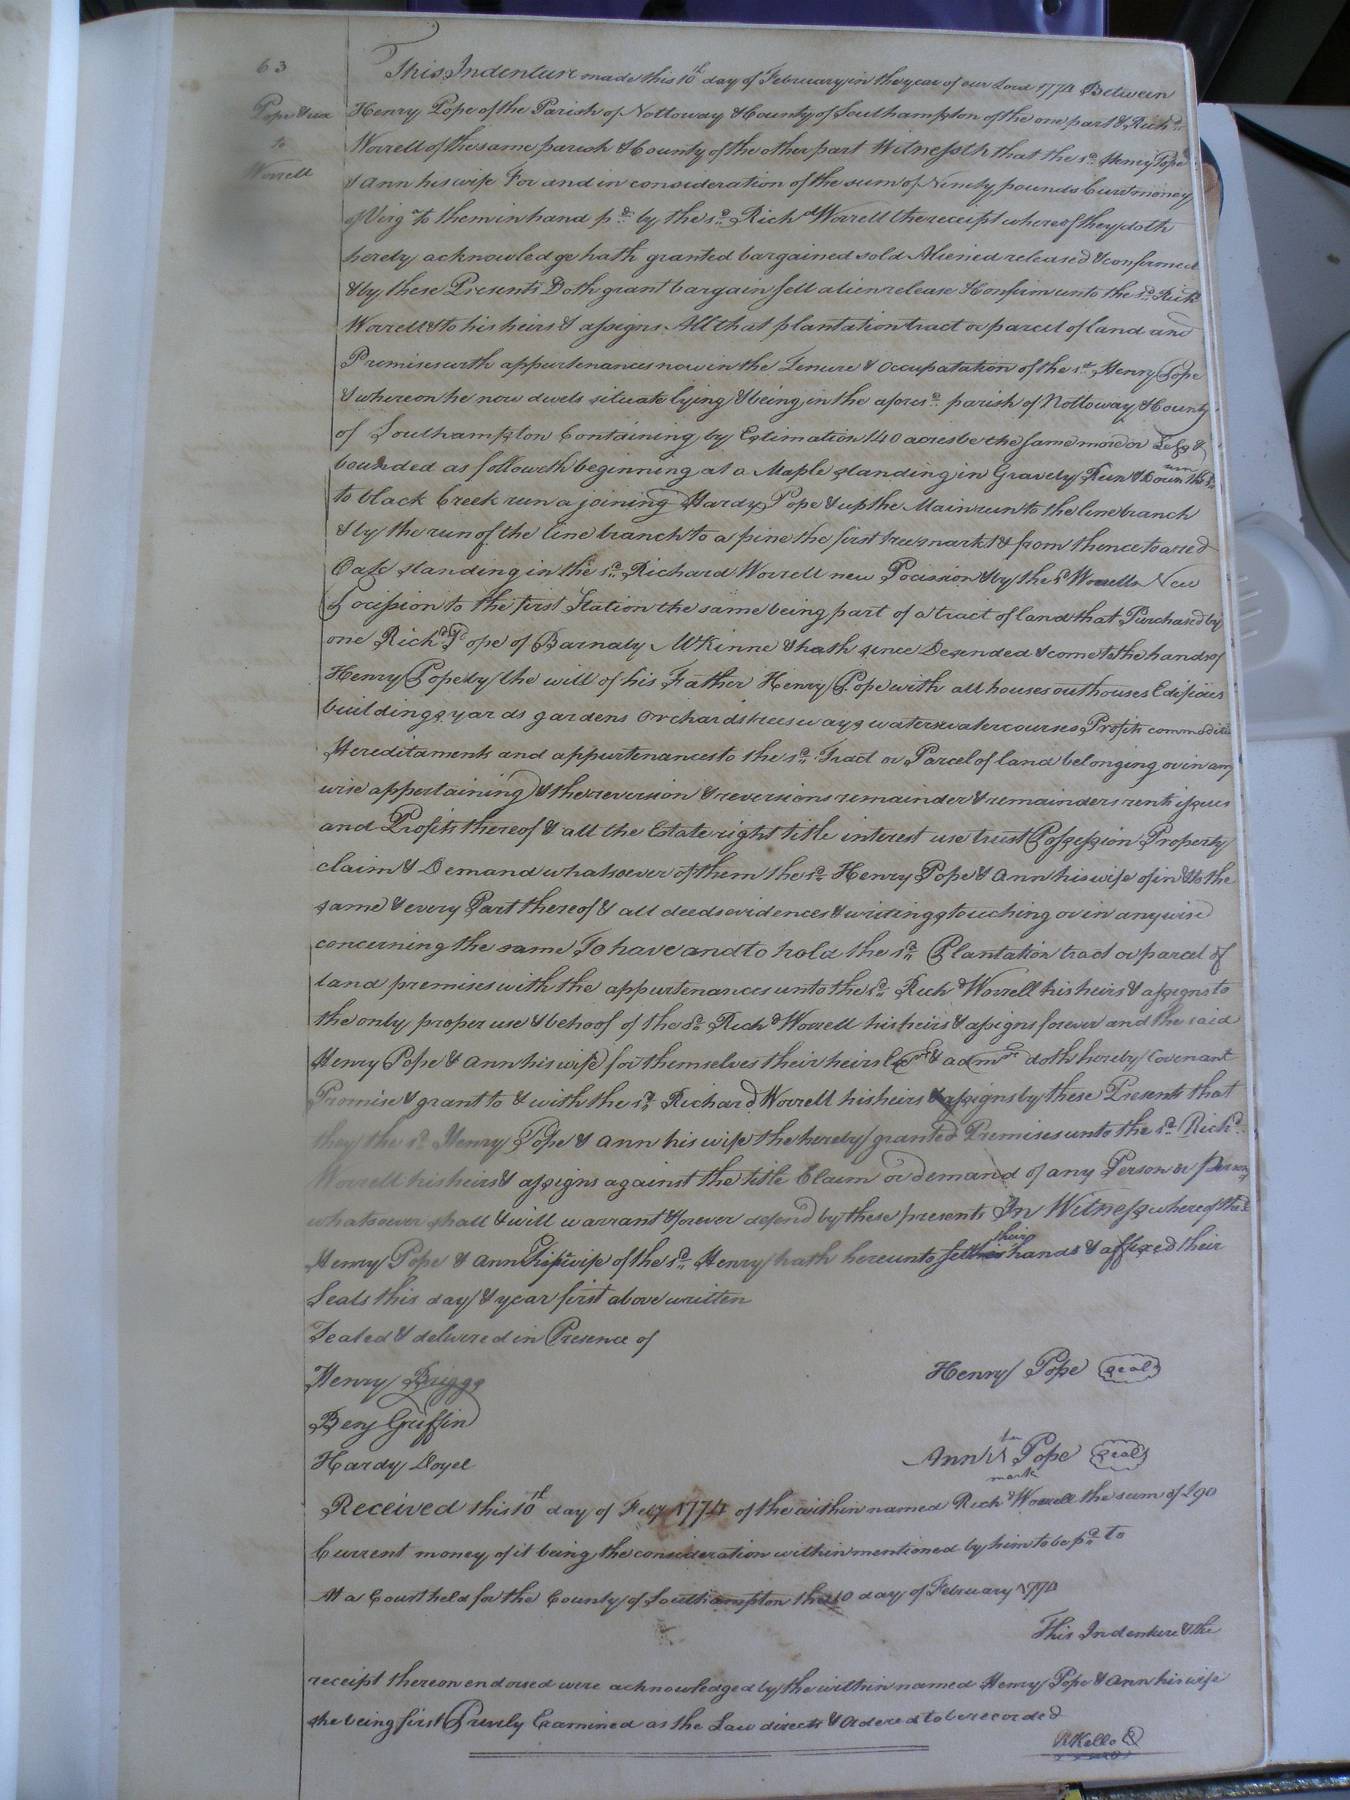 63
Pope & ux
to
Worrell
This Indenture made this 10th day of February in the year of our Lord 1774 Between
Henry Pope of the Parish of Nottoway & County of Southampton of the one part & Richd
Worrell of the same parish & County of the other part Witnesseth that the sd Henry Pope
& Ann his wife For and in consideration of the sum of Ninety pounds Curt money
of Virga to them in hand pd by the sd Richd Worrell the receipt whereof they doth
hereby acknowledge hath granted bargained sold Aliened released & confirmed
& by these Presents Doth grant bargain sell alien release & Confirm unto the sd Richd
Worrell & to his heirs & assigns All that plantation tract or parcel of land and
Premises with appurtenances now in the Tenure & Occupatation of the sd Henry Pope
& whereon he now dwels situate lying & being in the aforesd parish of Nottoway & County
of Southampton Containing by Estimation 140 acres be the same more or Less &
bounded as followeth beginning at a Maple standing in Gravely Run & Down the sd run
to black Creek run a joining Hardy Pope & up the Main run to the line branch
& by the run of the line branch to a pine the first tree markt & from thence to a red
Oak standing in the sd Richard Worrell new Pocission & by the sd Worrells New
Pocission to the first Station the same being part of a tract of land that Purchased by
one Richd Pope of Barnaby McKinne & hath since Desended & come to the hands of
Henry Pope by the will of his Father Henry Pope with all houses outhouses Edifices
buildings yards gardens Orchards trees ways waters watercourses Profits commodities
Hereditaments and appurtenances to the sd Tract or Parcel of land belonging or in any
wise appertaining & the reversion & reversions remainder & remainders rents issues
and Profits thereof & all the Estate right title interest use trust Possession Property
claim & Demand whatsoever of them the sd Henry Pope & Ann his wife of in & to the
same & every Part thereof & all deeds evidences & writings touching or in any wise
concerning the same To have and to hold the sd Plantation tract or parcel of
land premises with the appurtenances unto the sd Richd Worrell his heirs & assigns to
the only proper use & behoof of the sd Richd Worrell his heirs & assigns forever and the said
Henry Pope & Ann his wife for themselves their heirs Exrs & admrs doth hereby Covenant
Promise & grant to & with the sd Richard Worrell his heirs & assigns by these Presents that
they the sd Henry Pope & Ann his wife the hereby granted Premises unto the sd Richd
Worrell his heirs & assigns against the title Claim or demand of any Person or persons
whatsoever shall & will warrant & forever defend by these presents In Witness whereof the sd
Henry Pope & Ann his wife of the sd Henry hath hereunto set their hands & affixed their
Seals this day & year first above written
Sealed & delivered in Presence of
Henry Briggs
Henry Pope seal
Benj Griffin
Hardy Doyel
Ann her mark Pope seal
Received this 10th day of Feby 1774 of the within named Richd Worrell the sum of £90
Current money of it being the consideration within mentioned by him to be pd to
At a Court held for the County of Southampton the 10 day of February 1774
This Indenture & the
receipt thereon endorsed were acknowledged by the within named Henry Pope & Ann his wife
she being first Privily Examined as the Law directs & Ordered to be recorded
R Kello